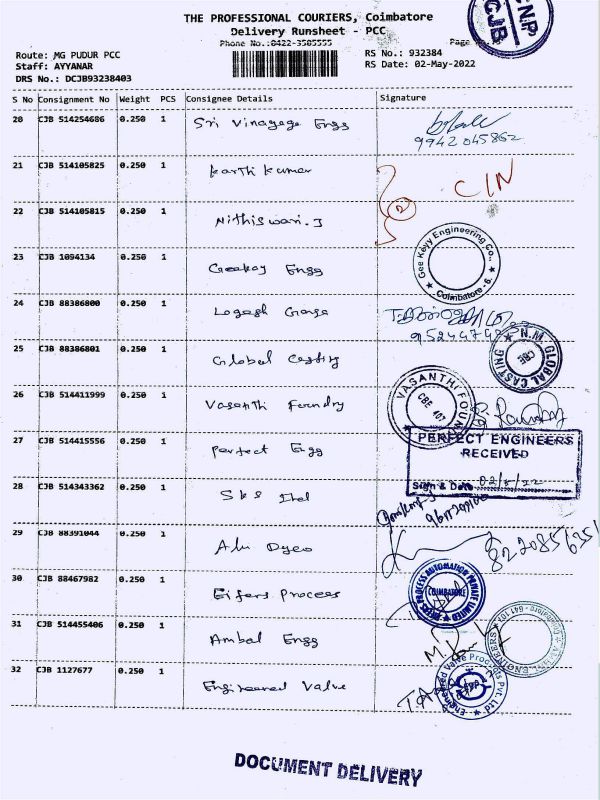 THE PROFESSIONAL COURIERS, Coimbatore
Delivery Runsheet - PCC
Phone No.:0422-3505555
Page
C.N.P
CJB
Route: MG PUDUR PCC
Staff: AYYANAR
DRS No.: DCJB93238403
RS No.: 932384
RS Date: 02-May-2022
S No Consignment No Weight PCS Consignee Details Signature
20 CJB 514254686 0.250 1 Sri Vinayaga Engg
9942045862
21 CJB 514105825 0.250 1 Karthi Kumar
C/N
22 CJB 514105815 0.250 1 Nithiswari.J
2
23 CJB 1094134 0.250 1 Geekay Engg
Gee Keyy Engineering Co., Coimbatore - 6.
24 CJB 88386800 0.250 1 Logesh
25 CJB 88386801 0.250 1 Global Casting
N.M. GLOBAL CASTING
CBE
26 CJB 514411999 0.250 1 Vasanth Foundry
VASANTHI
CBE 407
27 CJB 514415556 0.250 1 Perfect Engg
PERFECT ENGINEERS
RECEIVED
Sign & Date 02/5/22
28 CJB 514343362 0.250 1 SKS
29 CJB 88391044 0.250 1
8220856351
30 CJB 88467982 0.250 1 Eifers Process
PROCESS AUTOMATION PRIVATE LIMITED
COIMBATORE
31 CJB 514455406 0.250 1 Ambal Engg
ENGINEERS
32 CJB 1127677 0.250 1 Engineered Valve
Engineered Valve Pvt. Ltd
DOCUMENT DELIVERY